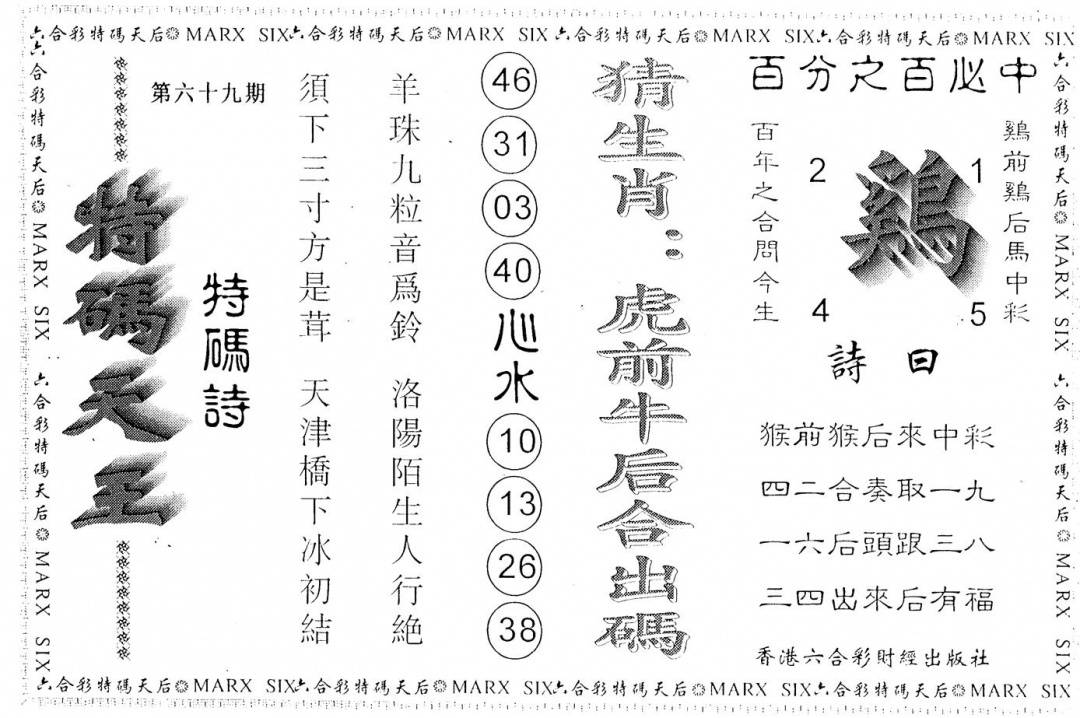 六合彩特碼天后 MARX SIX 六合彩特碼天后 MARX SIX 六合彩特碼天后 MARX SIX 六合彩特碼天后 MARX SIX
六合彩特碼天后 MARX SIX 六合彩特碼天后 MARX SIX
百分之百必中
鷄前鷄后馬中彩
1
2
鷄
5
4
百年之合問今生
詩曰
猴前猴后來中彩
四二合奏取一九
一六后頭跟三八
三四出來后有福
香港六合彩財經出版社
猜生肖：虎前牛后合出碼
46
31
03
40
心水
10
13
26
38
羊珠九粒音爲鈴 洛陽陌生人行絶
須下三寸方是茸 天津橋下冰初結
第六十九期
特碼詩
特碼天王
六合彩特碼天后 MARX SIX 六合彩特碼天后 MARX SIX
六合彩特碼天后 MARX SIX 六合彩特碼天后 MARX SIX 六合彩特碼天后 MARX SIX 六合彩特碼天后 MARX SIX